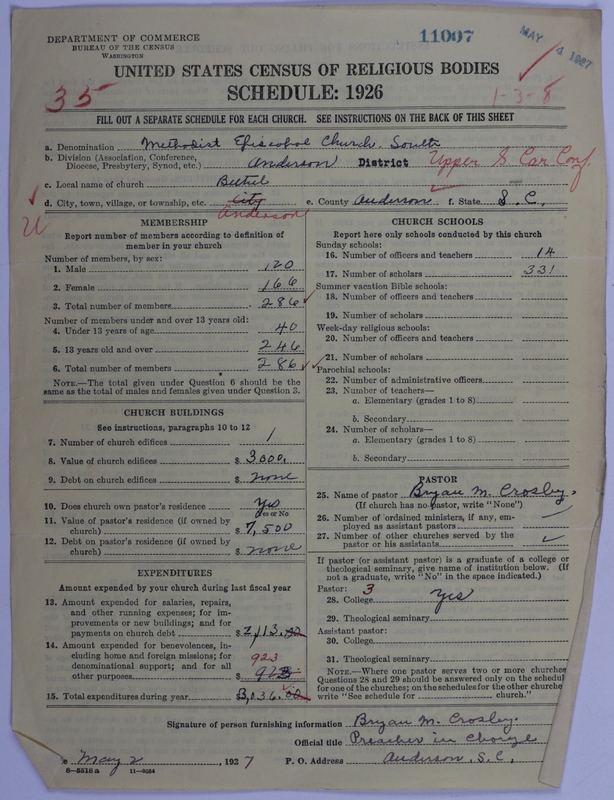 DEPARTMENT OF COMMERCE
BUREAU OF THE CENSUS
WASHINGTON
11007
MAY 4 1927
UNITED STATES CENSUS OF RELIGIOUS BODIES
35
SCHEDULE: 1926
1-3-8
FILL OUT A SEPARATE SCHEDULE FOR EACH CHURCH. SEE INSTRUCTIONS ON THE BACK OF THIS SHEET
a. Denomination Methodist Episcopal Church, South
b. Division (Association, Conference, Diocese, Presbytery, Synod, etc.) Anderson District Upper S Car Conf.
c. Local name of church Bethel
d. City, town, village, or township, etc. City Anderson e. County Anderson f. State S. C.
U
MEMBERSHIP
Report number of members according to definition of
member in your church
Number of members, by sex:
1. Male 120
2. Female 166
3. Total number of members 286
Number of members under and over 13 years old:
4. Under 13 years of age 40
5. 13 years old and over 246
6. Total number of members 286
NOTE.—The total given under Question 6 should be the
same as the total of males and females given under Question 3.
CHURCH BUILDINGS
See instructions, paragraphs 10 to 12
7. Number of church edifices 1
8. Value of church edifices $ 3,000.
9. Debt on church edifices $ none
10. Does church own pastor's residence Yes
Yes or No
11. Value of pastor's residence (if owned by
church) $ 7,500
12. Debt on pastor's residence (if owned by
church) $ none
EXPENDITURES
Amount expended by your church during last fiscal year
13. Amount expended for salaries, repairs,
and other running expenses; for im-
provements or new buildings; and for
payments on church debt $ 2,113.
14. Amount expended for benevolences, in-
cluding home and foreign missions; for
denominational support; and for all
923
other purposes $ 923
15. Total expenditures during year $ 3,036.00
CHURCH SCHOOLS
Report here only schools conducted by this church
Sunday schools:
16. Number of officers and teachers 14
17. Number of scholars 331
Summer vacation Bible schools:
18. Number of officers and teachers
19. Number of scholars
Week-day religious schools:
20. Number of officers and teachers
21. Number of scholars
Parochial schools:
22. Number of administrative officers
23. Number of teachers—
a. Elementary (grades 1 to 8)
b. Secondary
24. Number of scholars—
a. Elementary (grades 1 to 8)
b. Secondary
PASTOR
25. Name of pastor Bryan M. Crosley,
(If church has no pastor, write "None")
26. Number of ordained ministers, if any, em-
ployed as assistant pastors
27. Number of other churches served by the
pastor or his assistants
If pastor (or assistant pastor) is a graduate of a college or
theological seminary, give name of institution below. (If
not a graduate, write "No" in the space indicated.)
Pastor: 3
28. College Yes
29. Theological seminary
Assistant pastor:
30. College
31. Theological seminary
NOTE.—Where one pastor serves two or more churches
Questions 28 and 29 should be answered only on the schedule
for one of the churches; on the schedules for the other churches
write "See schedule for church."
Signature of person furnishing information Bryan M. Crosley.
Official title Preacher in Charge
e May 2, 1927 P. O. Address Anderson, S.C.
8-5516 a 11-9054